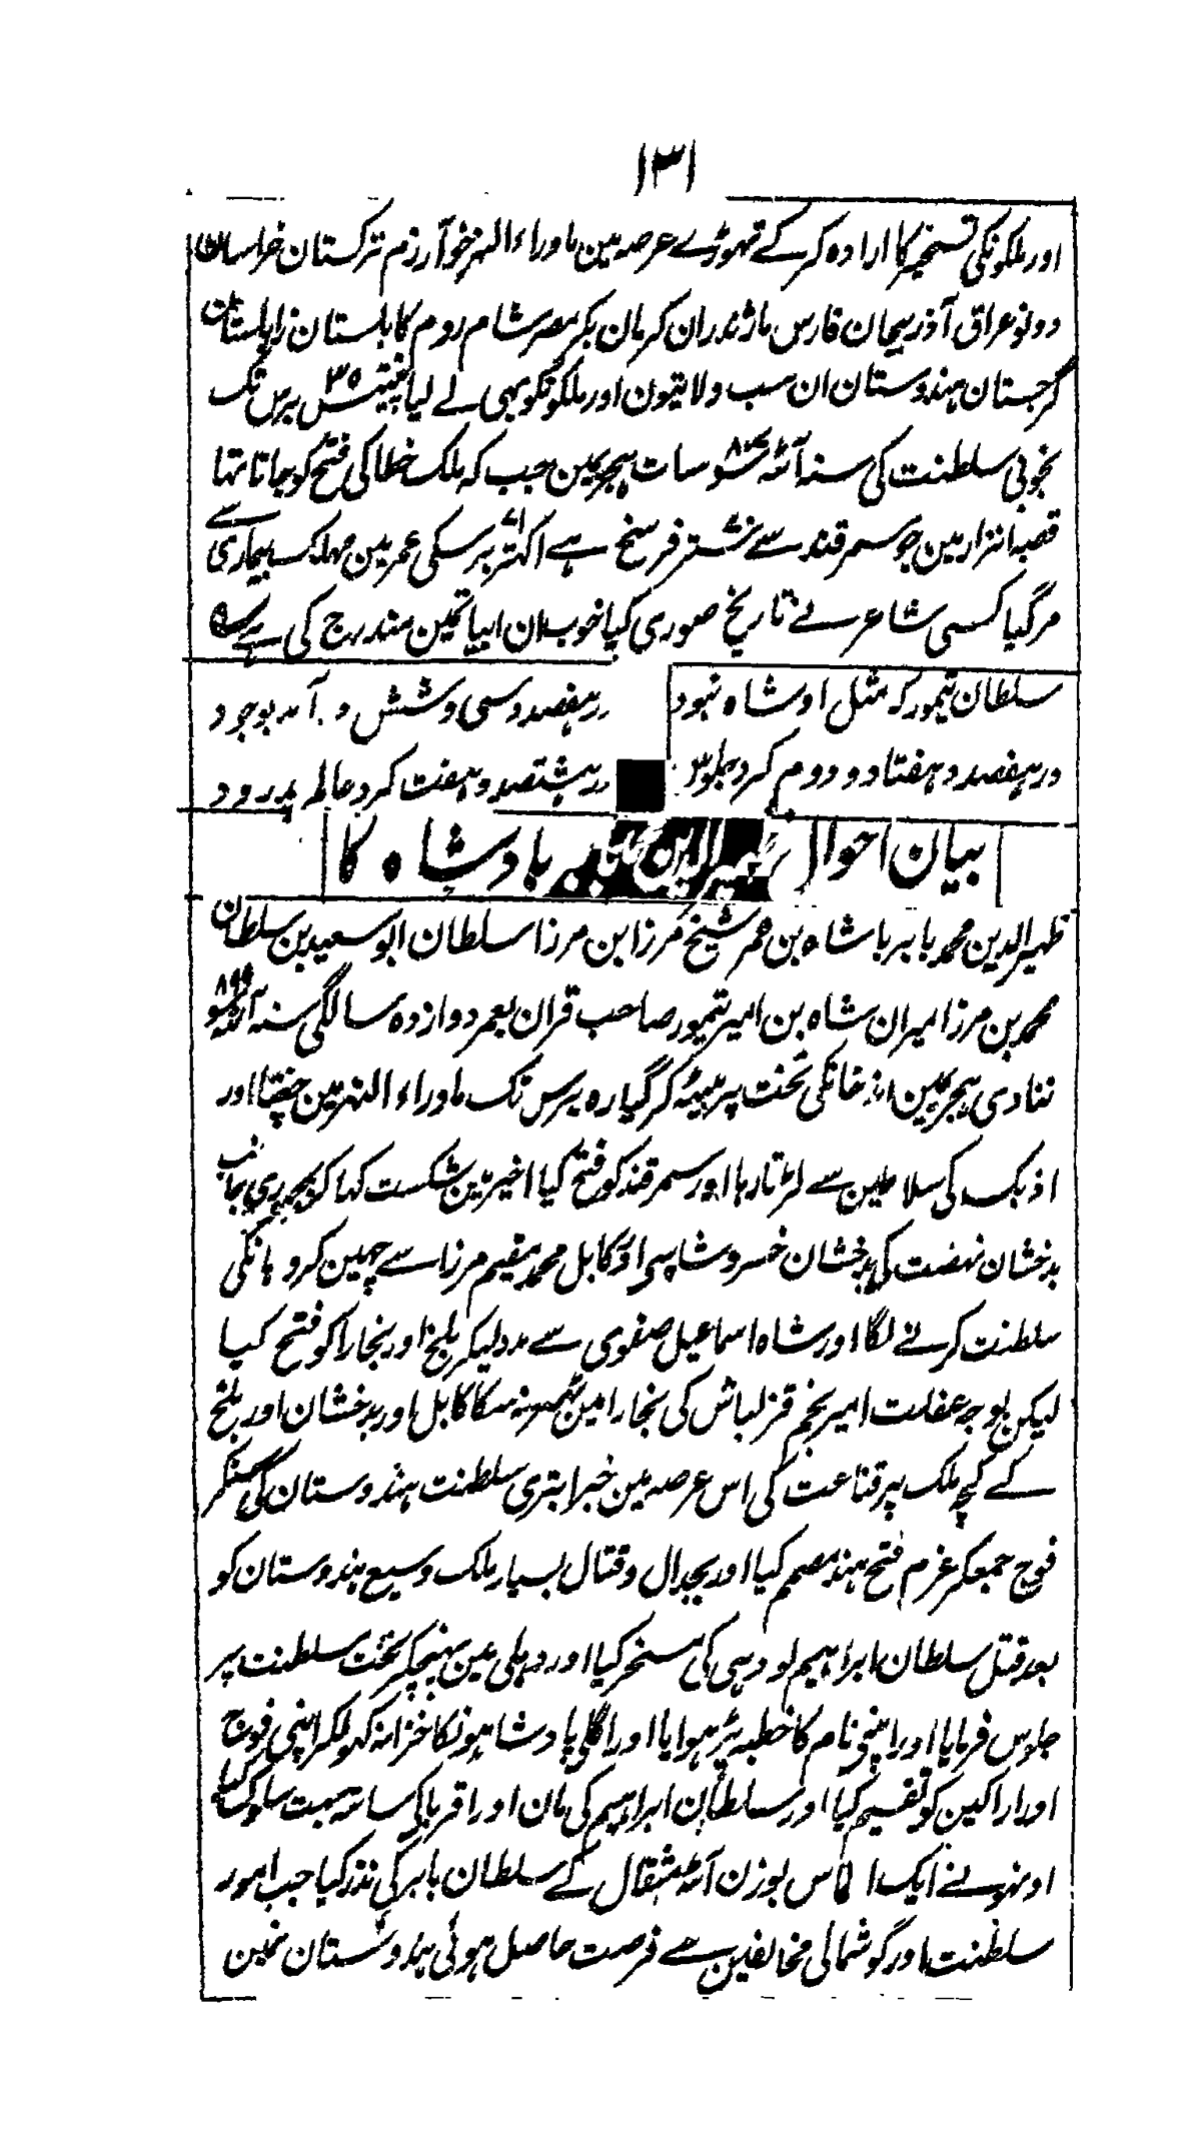 ۱۳۱
اور ملکونکی تسخیر کا ارادہ کر کے تہوڑے عرصہ مین ماوراء النہر خوآرزم ترکستان خراسان
دونو عراق آذربیجان فارس ماژندران کرمان بکر مصر شام روم کابلستان زابلستان
گرجستان ہندوستان ان سب ولایتون اور ملکونکو بھی لے لیا پینتیس ۳۵ برس تک
بخوبی سلطنت کی سنہ آٹھ سو سات ہجریمین جب کہ ملک خطا کی فتح کو جاتا تہا
قصبہ انزار مین جو سمرقند سے ستر فرسخ ہے اکہتر برسکی عمر مین مہلک بیماری سے
مر گیا کسی شاعر نے تاریخ صوری کیا خوب ان ابیاتمین مندرج کی ہے
سلطان تیمور کہ مثل او شاہ نبود در ہفصد و سی و شش در آمد بوجود
در ہفصد و ہفتاد و دوم کرد جلوس در ہشتصد و ہفت کرد عالم پدرود
بیان احوال ظہیر الدین بابر بادشاہ کا
ظہیر الدین محمد بابر باشاہ بن عمر شیخ مرزا بن مرزا سلطان ابو سعید بن سلطان
محمد بن مرزا میران شاہ بن امیر تیمور صاحب قران بعمر دوازدہ سالگی سنہ آٹھ سو ۸۹۹
ننادی ہجریمین اند خانکی تخت پر بیٹھ کر گیارہ برس تک ماوراء النہر مین چغتا اور
اذبک کی سلاطین سے لڑتا رہا اور سمرقند کو فتح کیا اخیر مین شکست کہا کر بمجبوری بجانب
بدخشان نہضت کی بدخشان خسرو شاسی اور کابل محمد مقیم مرزا سے چہین کر وہانکی
سلطنت کرنے لگا اور شاہ اسماعیل صفوی سے مدد لیکر بلخ اور بخارا کو فتح کیا
لیکن بوجہ غفلت امیر نجم قزلباش کی بخارا مین ٹھہر نہ سکا کابل اور بدخشان اور بلخ
کے کچھ ملک پر قناعت کی اس عرصہ مین خبر ابتری سلطنت ہندوستان کی سنکر
فوج جمعکر عزم فتح ہند مصمم کیا اور بجدال و قتال بسیار ملک وسیع ہندوستان کو
بعد قتل سلطان ابراہیم لودہی کی مسخر کیا اور دہلی مین پہنچکر تخت سلطنت پر
جلوس فرمایا اور اپنی نام کا خطبہ پڑہوایا اور اگلی پادشاہونکا خزانہ کہولکر اپنی فوج
اور اراکین کو تقسیم کیا اور سلطان ابراہیم کی مان اور اقربا کی ساتہ بہت سلوک کیا
اونہونے ایک الماس بوزن آٹھ مثقال کے سلطان بابر کی نذر کیا جب امور
سلطنت اور گوشمالی مخالفین سے فرصت حاصل ہوئی ہندوستان مین